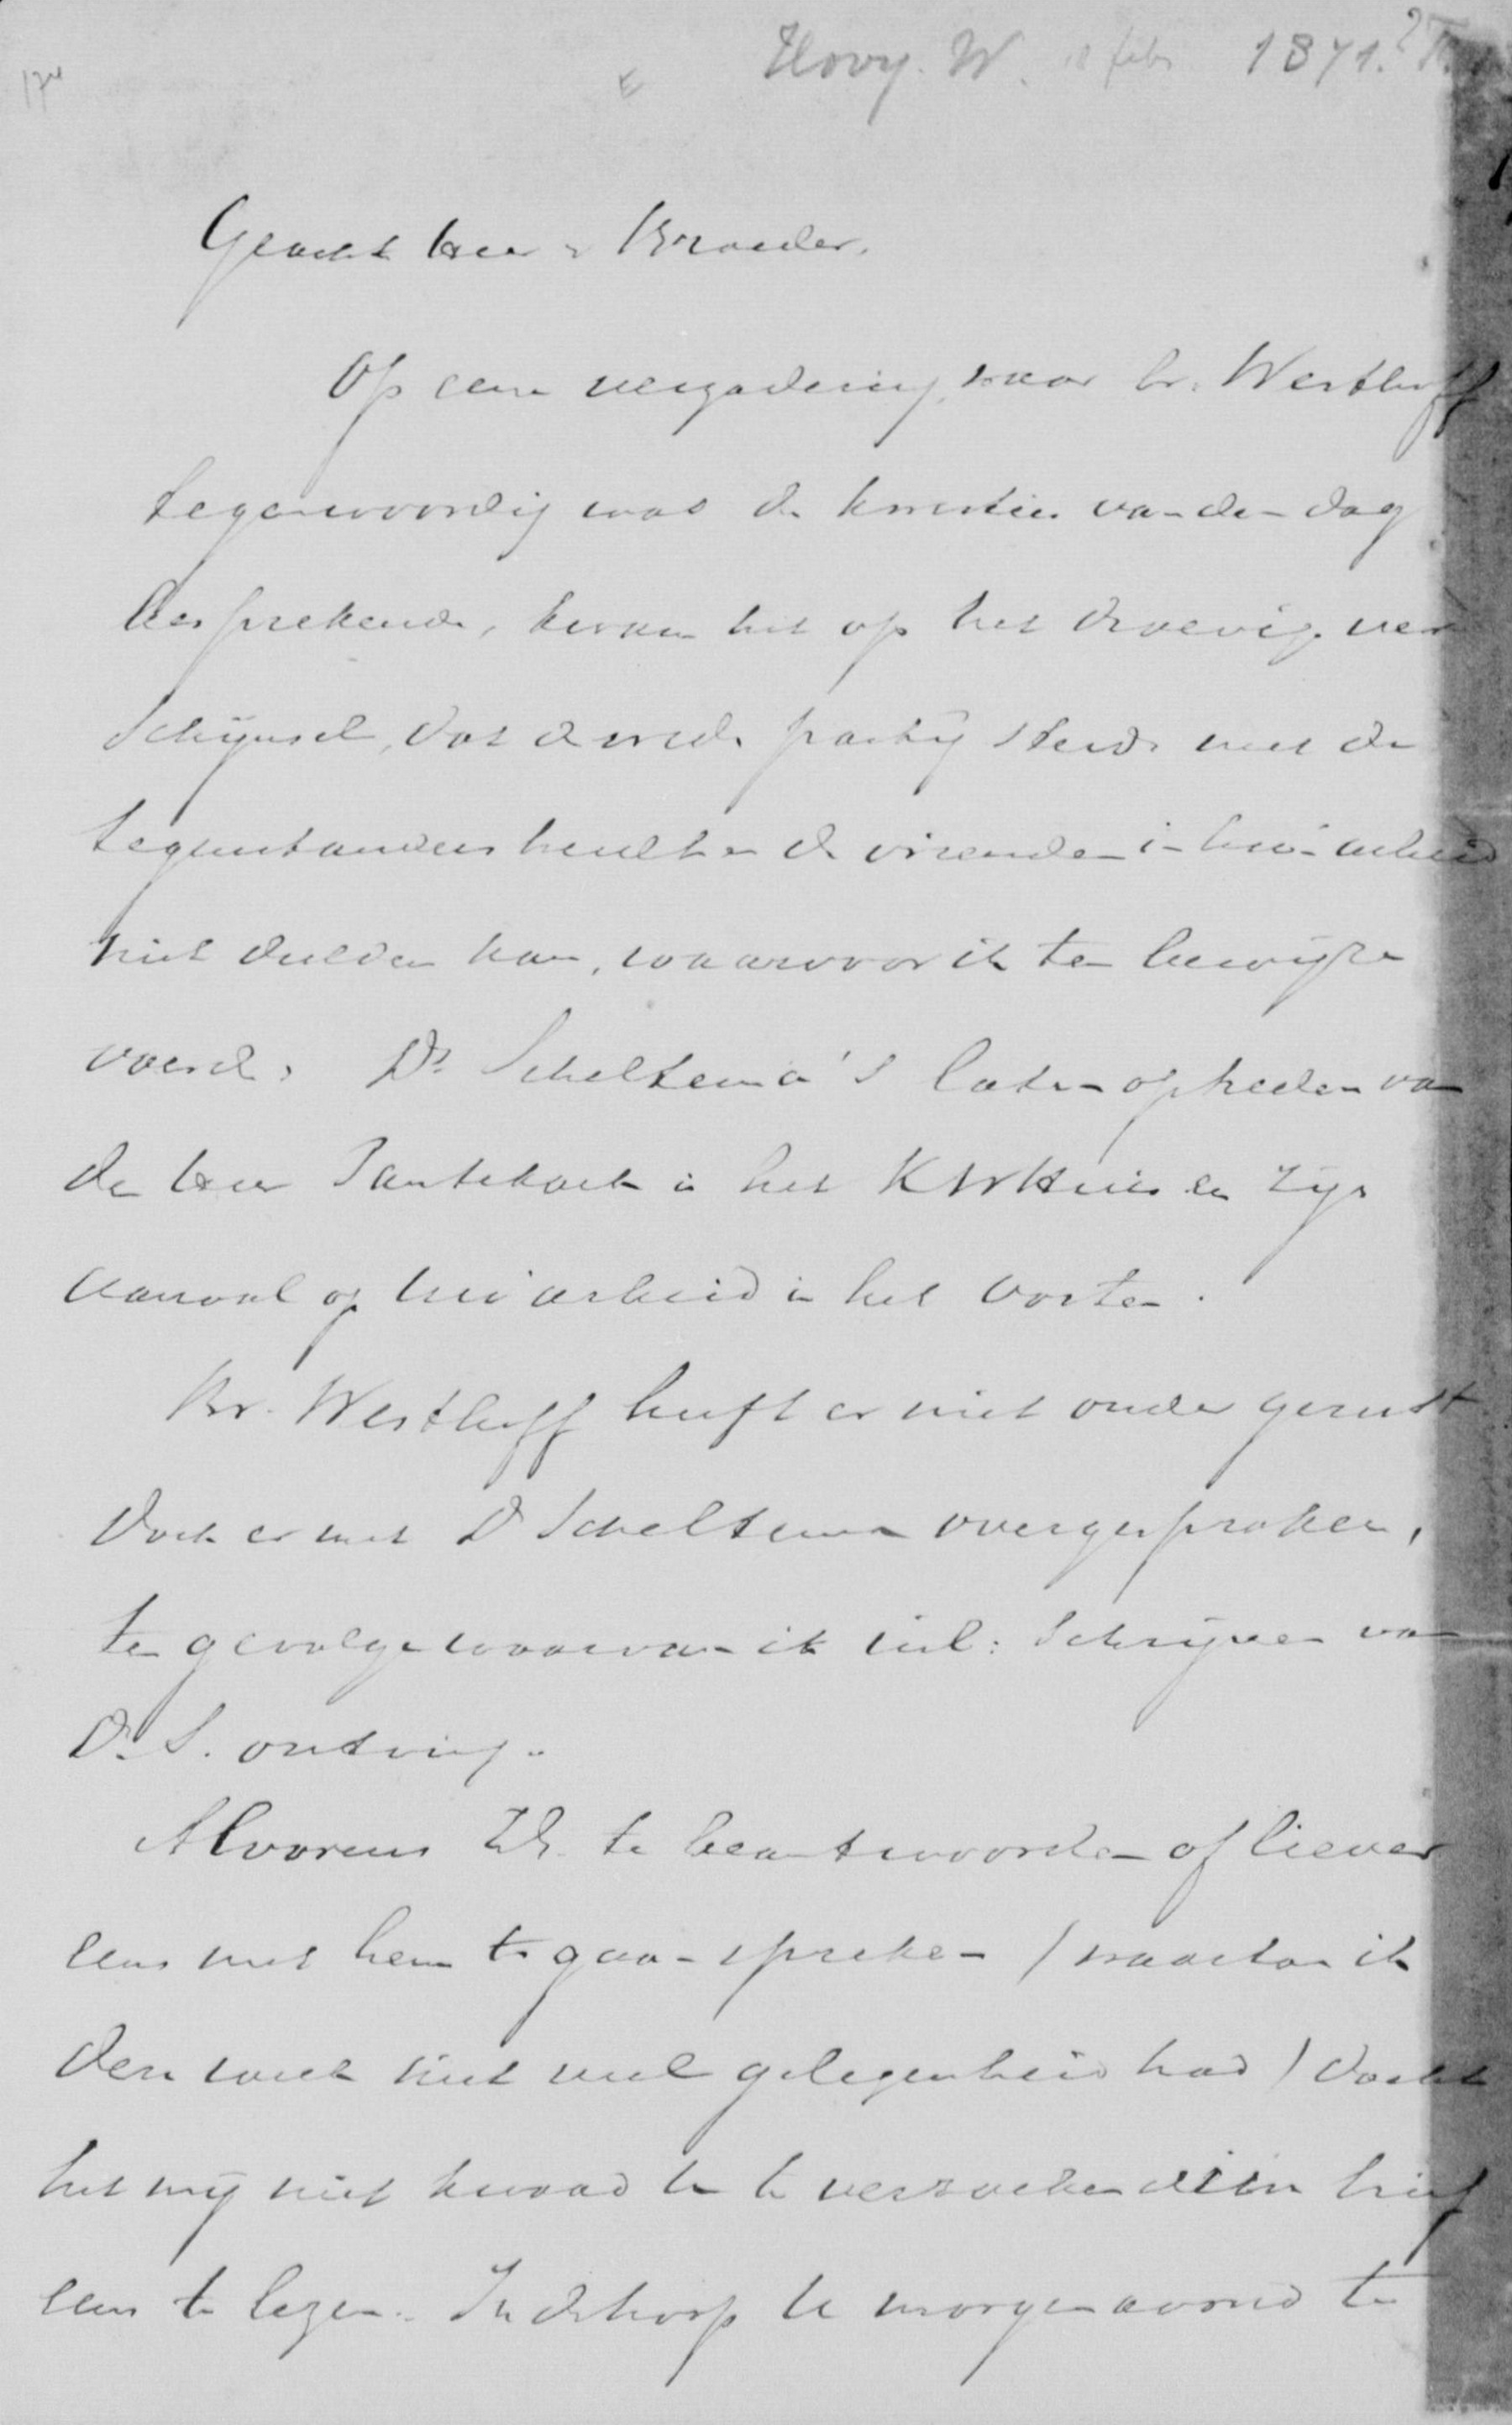 Hovy. W. 18 feb 1871.
Geacht heer & Broeder.
Op eene vergadering, waar br. Westhoff
tegenwoordig was de kwestie van den dag
besprekende, kwam het op het droevig ver
schijnsel, dat de partij steeds met de
tegenstanders heult en de vrienden in hun arbeid
niet dulden kan, waarvoor ik ten bewijze
voerde, Ds Scheltema's laten optreden van
den heer in het en zijn
aanval op hun arbeid in het
Br. Westhoff heeft er niet onder gerust
doch er met D Scheltema over gesproken,
ten gevolge waarvan ik inl: schrijven van
D. S. ontving.
Alvorens ZE. te beantwoorden of liever
eens met hem te gaan spreken / waartoe ik
deze week niet veel gelegenheid had / dacht
het mij niet kwaad U te verzoeken dien brief
eens te lezen. Ik hoop U morgenavond te